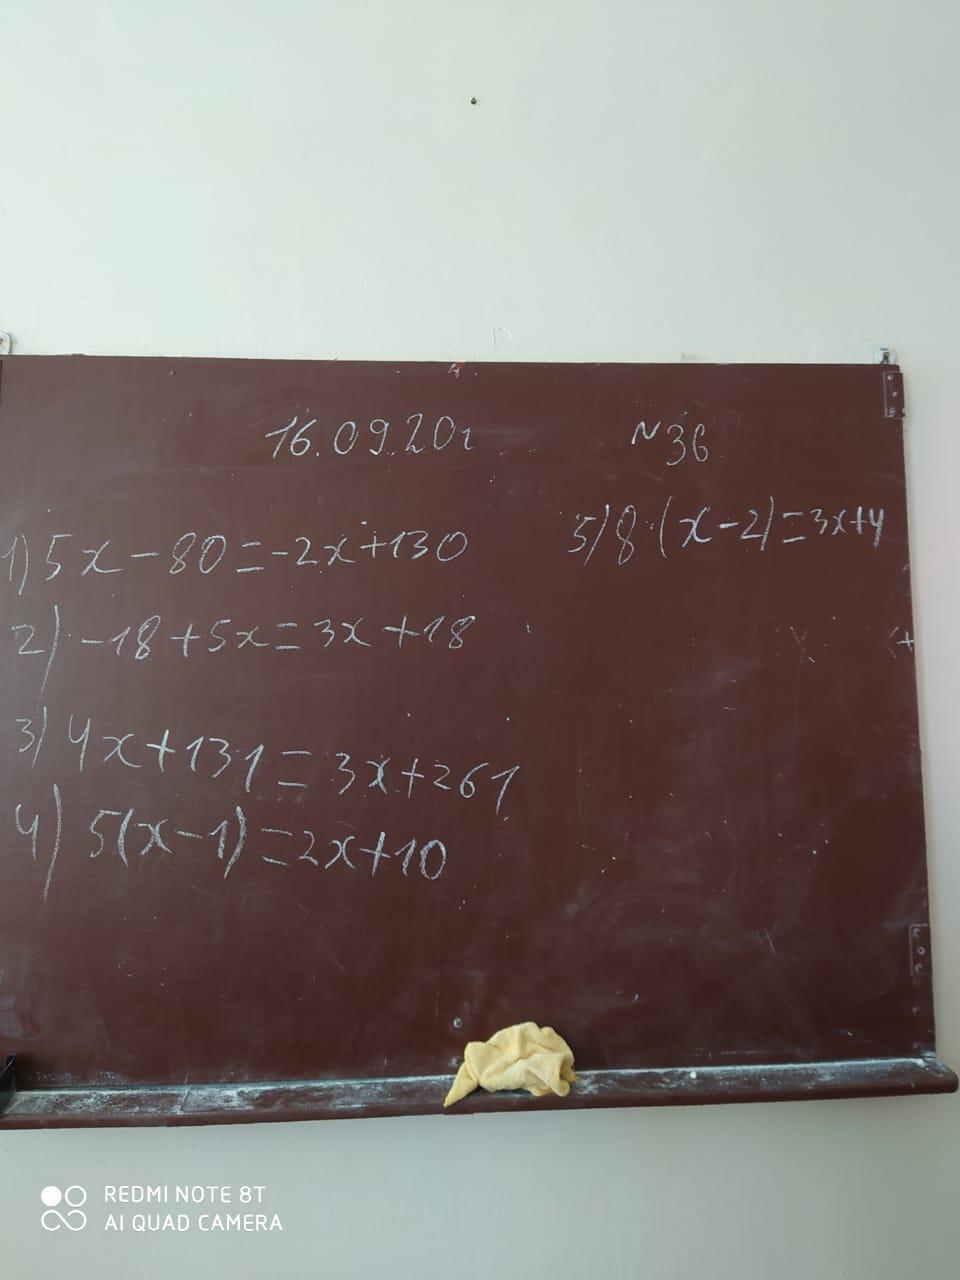 16.09.20г
N36
1) 5x-80=-2x+130
2) -18+5x=3x+18
3) 4x+131=3x+261
4) 5(x-1)=2x+10
5) 8·(x-2)=3x+4
REDMI NOTE 8T
AI QUAD CAMERA